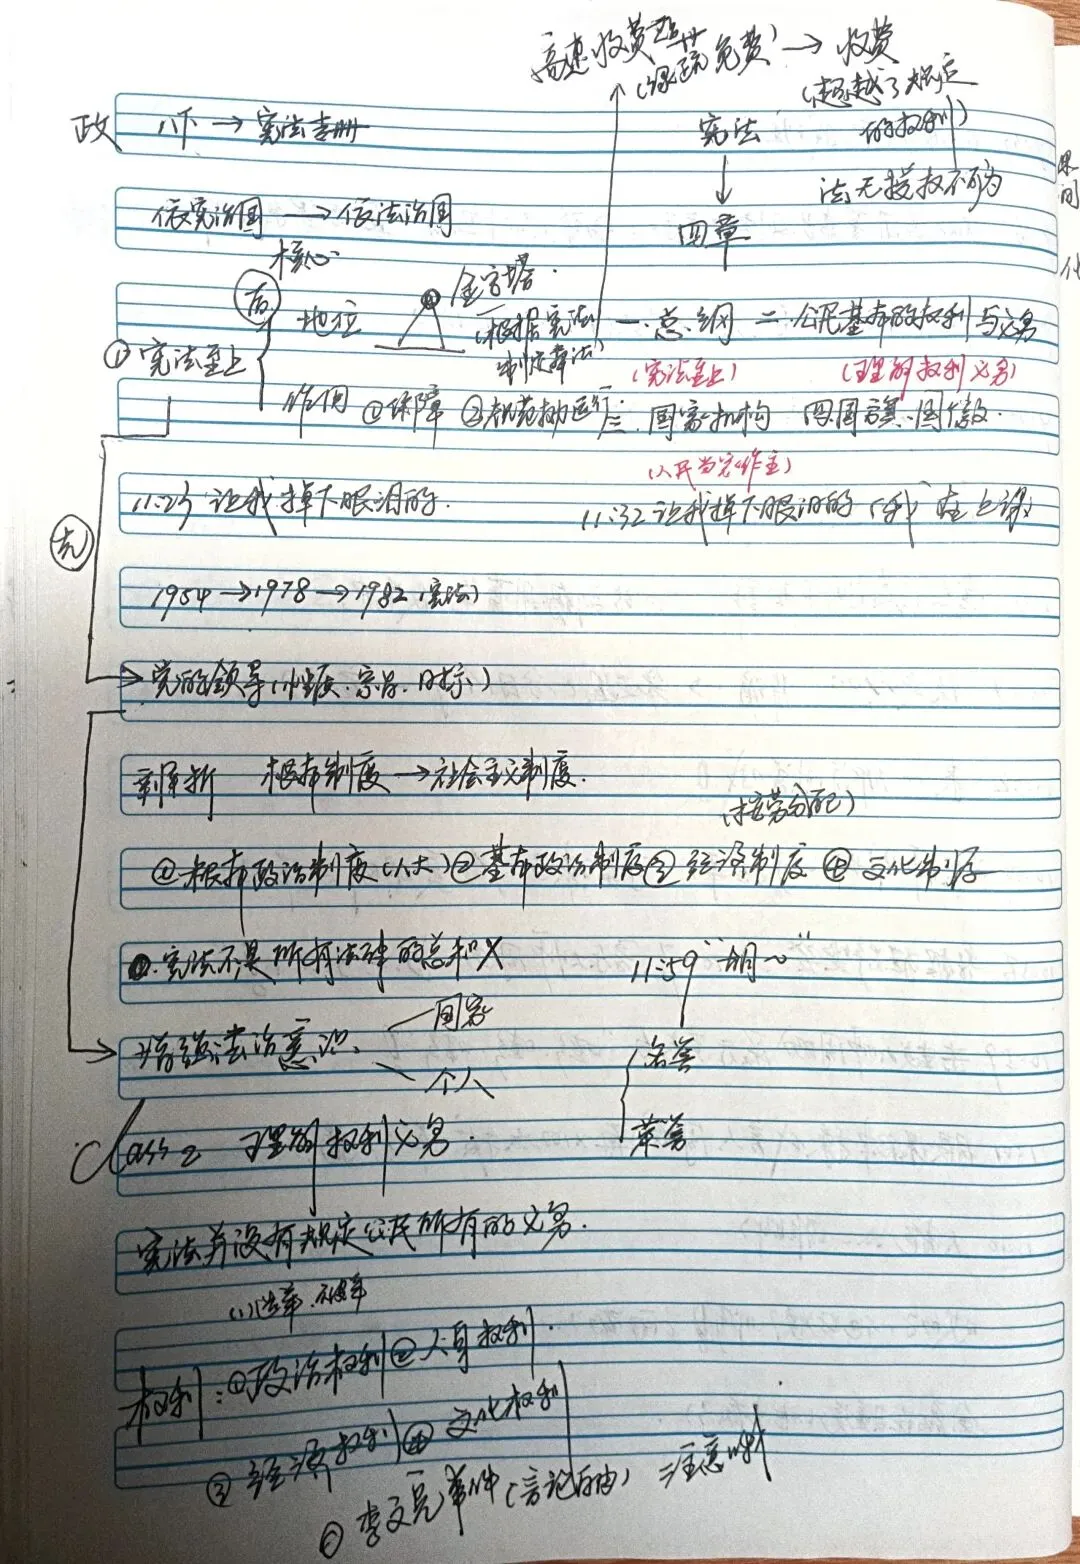 高速收费站(绿蔬免费) → 收费
(超越了规定的权利)
政 八下 → 宪法专册
宪法
法无授权不可为
↓
依宪治国 → 依法治国
四章
核心
后
地位 金字塔
(根据宪法制定其法)
一.总纲 二.公民基本的权利与义务
① 宪法至上
(宪法至上) (理解权利义务)
作用 ①保障 ②规范权力运行
三.国家机构 四.国旗.国徽.
(人民当家作主)
11:23 让我掉下眼泪的.
11:32 让我掉下眼泪的 "我" 在上课
先
1954 → 1978 → 1982 (宪法)
党的领导(性质.宗旨.目标.)
根本制度 → 社会主义制度.
(按劳分配)
①根本政治制度(人大) ②基本政治制度 ③经济制度 ④文化制度
宪法不是所有法律的总和 X
11:59 "胡~"
国家
增强法治意识
个人
名誉
荣誉
Class 2 理解权利义务.
宪法并没有规定公民所有的义务.
(1)选举.被选举
权利: ①政治权利 ②人身权利.
③经济权利 ④文化权利
李文亮事件(言论自由) 注意